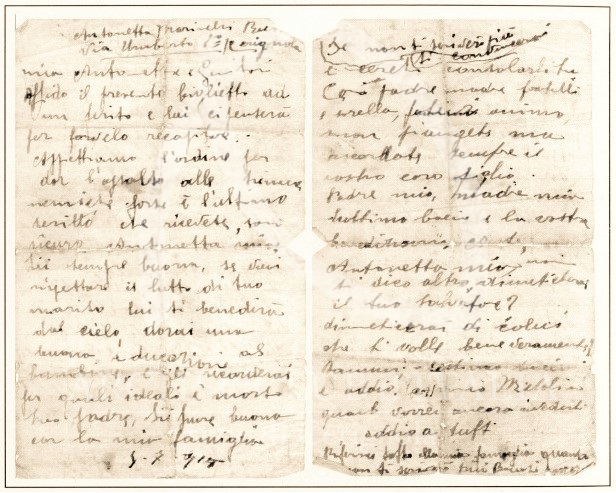 Antonetta
Via Umberto 1º
mia Antonetta e genitori
affido il presente biglietto ad
un ferito e lui tenterà
per farvelo recapitare.
Aspettiamo l'ordine per
dar l'assalto alle trincee
nemiche forse è l'ultimo
scritto che ricevete, son
sicuro Antonetta mia
sii sempre buona, se devi
rispettare il lutto di tuo
marito lui ti benedirà
dal cielo, darai una
buona educazioni al
bambino, e gli ricorderai
per quali ideali è morto
suo padre, sii pure buona
con la mia famiglia
5-7 915
Se non ti scriverò più
ti convincerai
e cerchi consolarti tu
Caro padre madre fratelli
sorella, fatevi animo,
non piangete ma
ricordate sempre il
vostro caro figlio.
Padre mio, madre mia
l'ultimo bacio e la vostra
benedizioni,
Antonetta mia non
ti dico altro, dimenticherai
il tuo Salvatore?
dimenticherai di colui
che ti volle bene veramente?
ultimo
e addio.
quale vorrei ancora
addio a tutti
alla mia famiglia quando
non ti scriverò